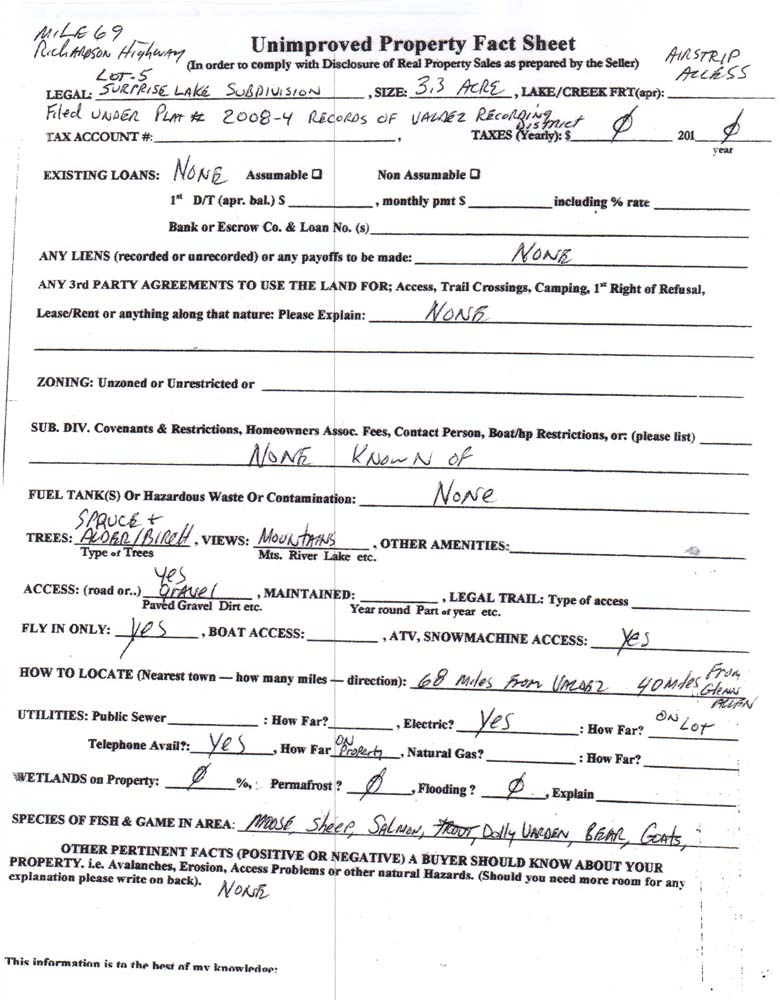 MILE 69
Richardson Highway
Unimproved Property Fact Sheet
(In order to comply with Disclosure of Real Property Sales as prepared by the Seller)
AIRSTRIP
ACCESS
LOT-5
LEGAL: SURPRISE LAKE SUBDIVISION, SIZE: 3.3 ACRE, LAKE/CREEK FRT(apr):
Filed UNDER PLAT # 2008-4 RECORDS OF VALDEZ RECORDING District
TAX ACCOUNT #: , TAXES (Yearly): $ Ø 201 Ø
year
EXISTING LOANS: NONE Assumable ☐ Non Assumable ☐
1st D/T (apr. bal.) $ , monthly pmt $ including % rate
Bank or Escrow Co. & Loan No. (s)
ANY LIENS (recorded or unrecorded) or any payoffs to be made: NONE
ANY 3rd PARTY AGREEMENTS TO USE THE LAND FOR; Access, Trail Crossings, Camping, 1st Right of Refusal,
Lease/Rent or anything along that nature: Please Explain: NONE
ZONING: Unzoned or Unrestricted or
SUB. DIV. Covenants & Restrictions, Homeowners Assoc. Fees, Contact Person, Boat/hp Restrictions, or: (please list)
NONE KNOWN OF
FUEL TANK(S) Or Hazardous Waste Or Contamination: NONE
SPRUCE +
TREES: ALDER/BIRCH, VIEWS: MOUNTAINS, OTHER AMENITIES:
Type of Trees Mts. River Lake etc.
yes
ACCESS: (road or..) gravel, MAINTAINED: , LEGAL TRAIL: Type of access
Paved Gravel Dirt etc. Year round Part of year etc.
FLY IN ONLY: yes, BOAT ACCESS: , ATV, SNOWMACHINE ACCESS: yes
HOW TO LOCATE (Nearest town — how many miles — direction): 68 Miles From VALDEZ 40 Miles From GLENN ALLEN
UTILITIES: Public Sewer : How Far? , Electric? Yes : How Far? ON LOT
Telephone Avail?: Yes, How Far ON Property, Natural Gas? : How Far?
WETLANDS on Property: Ø %, Permafrost ? Ø, Flooding ? Ø, Explain
SPECIES OF FISH & GAME IN AREA: MOOSE Sheep, SALMON, TROUT, Dolly VARDEN, BEAR, GOATS,
OTHER PERTINENT FACTS (POSITIVE OR NEGATIVE) A BUYER SHOULD KNOW ABOUT YOUR
PROPERTY. i.e. Avalanches, Erosion, Access Problems or other natural Hazards. (Should you need more room for any
explanation please write on back). NONE
This information is to the best of my knowledge: